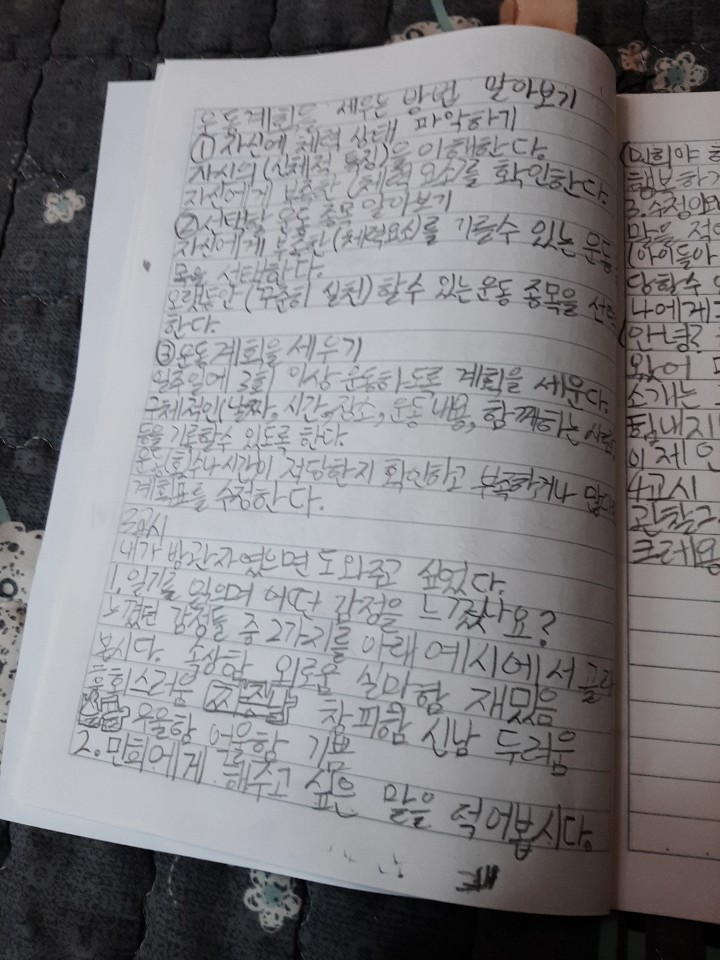 운동계획을 세우는 방법 알아보기
① 자신에 체력 상태 파악하기
자시의 (신체적 특징)을 이해한다.
자신에게 부족한 (체력 요소)를 확인한다.
② 선택할 운동 종목 알아보기
자신에게 부족한 (체력요소)를 기를수 있는 운동
목을 선택한다.
오랫동안 (꾸준히 실천) 할수 있는 운동 종목을 선
한다.
③ 운동 계획을 세우기
일주일에 3회 이상 운동하도록 계획을 세운다.
구체적인 (날짜, 시간, 장소, 운동 내용, 함께하는 사람
등을 기록할수 있도록 한다.
운동 시간이 적당한지 확인하고 부족하거나
계획표를 수정한다.
내가 방관자였으면 도와주고 싶었다.
1. 일기를 읽으며 어떤 감정을 느꼈나요?
느꼈던 감정들 중 2가지를 아래 예시에서 골라
봅시다. 속상함 외로움 실마함 재밌음
후회스러움 창피함 신남 두려움
우울함 억울함 기쁨
2. 민희에게 해주고 싶은 말을 적어봅시다.
(민희야
행복하
말을 적
(아이돌아
당할수
나에게
안녕?
왔어
소개는
힘내지
이제 인
4교시
관찰
크레용